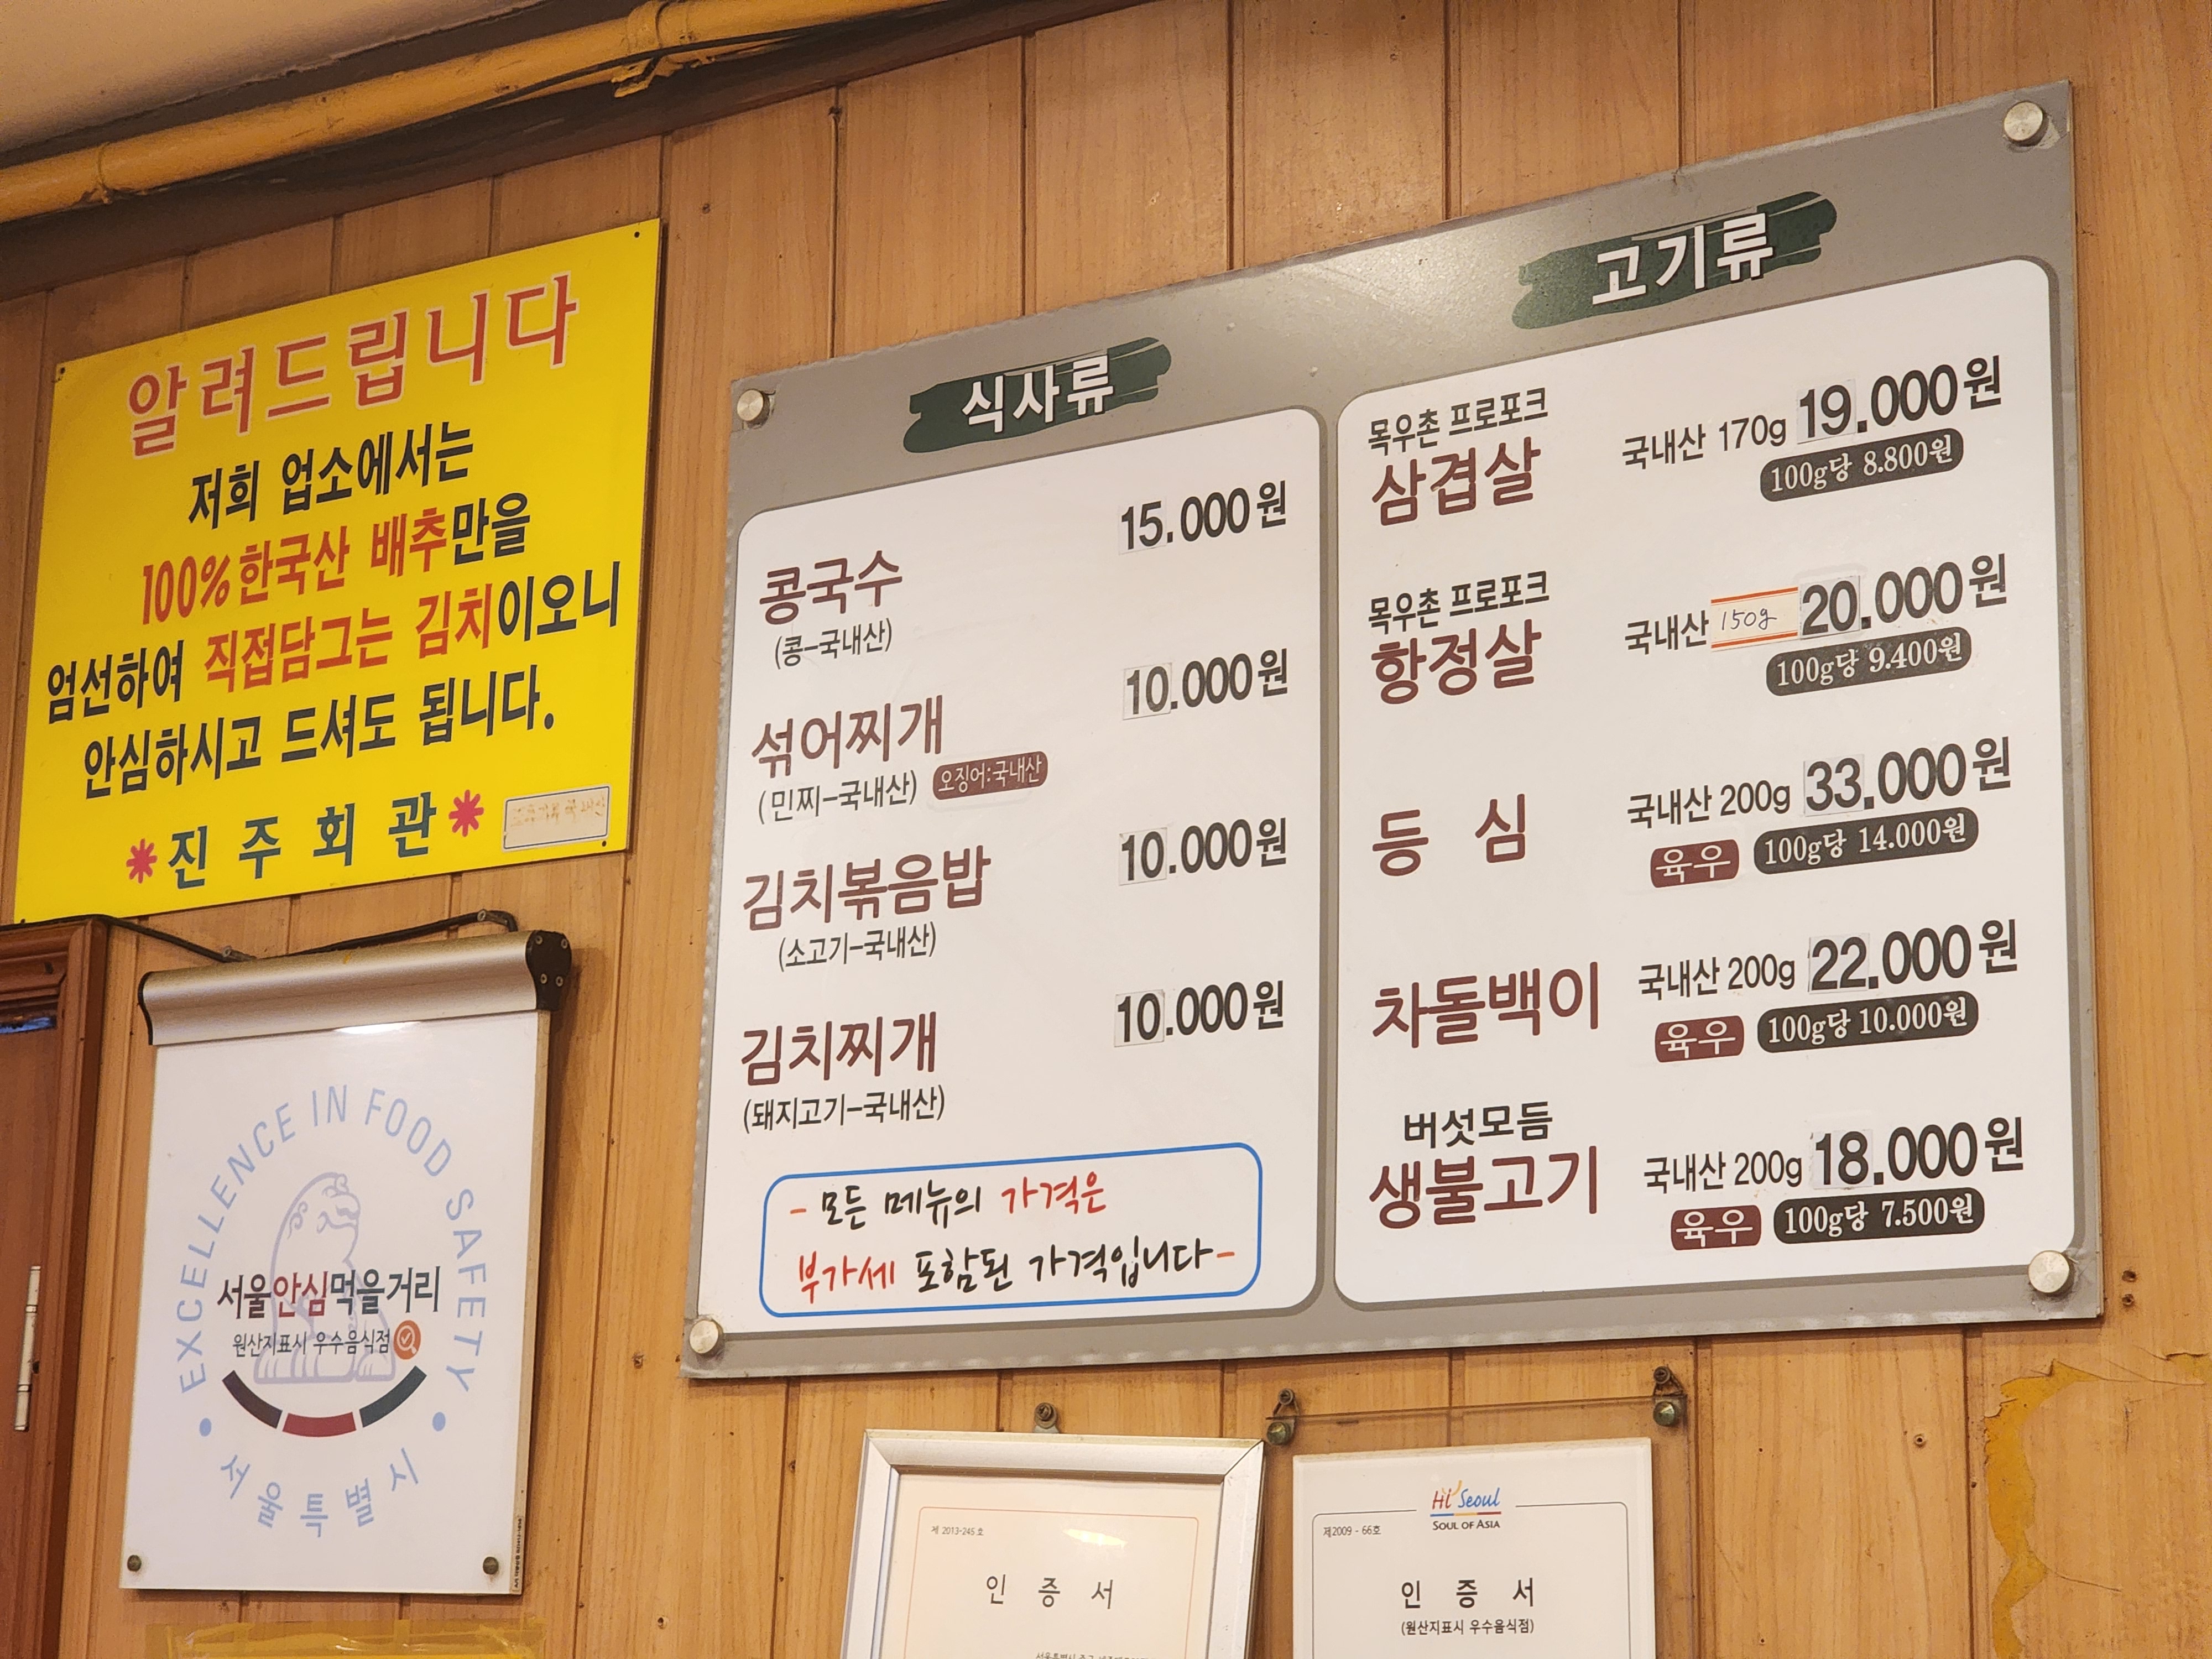 알려드립니다
저희 업소에서는
100%한국산 배추만을
엄선하여 직접담그는 김치이오니
안심하시고 드셔도 됩니다.
*진주회관*
EXCELLENCE IN FOOD SAFETY
서울안심먹을거리
원산지표시 우수음식점
서울특별시
식사류
콩국수 15.000원
(콩-국내산)
섞어찌개 10.000원
(민찌-국내산) 오징어:국내산
김치볶음밥 10.000원
(소고기-국내산)
김치찌개 10.000원
(돼지고기-국내산)
- 모든 메뉴의 가격은
부가세 포함된 가격입니다-
고기류
목우촌 프로포크
삼겹살 국내산 170g 19.000원
100g당 8.800원
목우촌 프로포크
항정살 국내산 150g 20.000원
100g당 9.400원
등심 국내산 200g 33.000원
육우 100g당 14.000원
차돌백이 국내산 200g 22.000원
육우 100g당 10.000원
버섯모듬
생불고기 국내산 200g 18.000원
육우 100g당 7.500원
제 2013-245 호
인 증 서
Hi Seoul
SOUL OF ASIA
제2009 - 66호
인 증 서
(원산지표시 우수음식점)